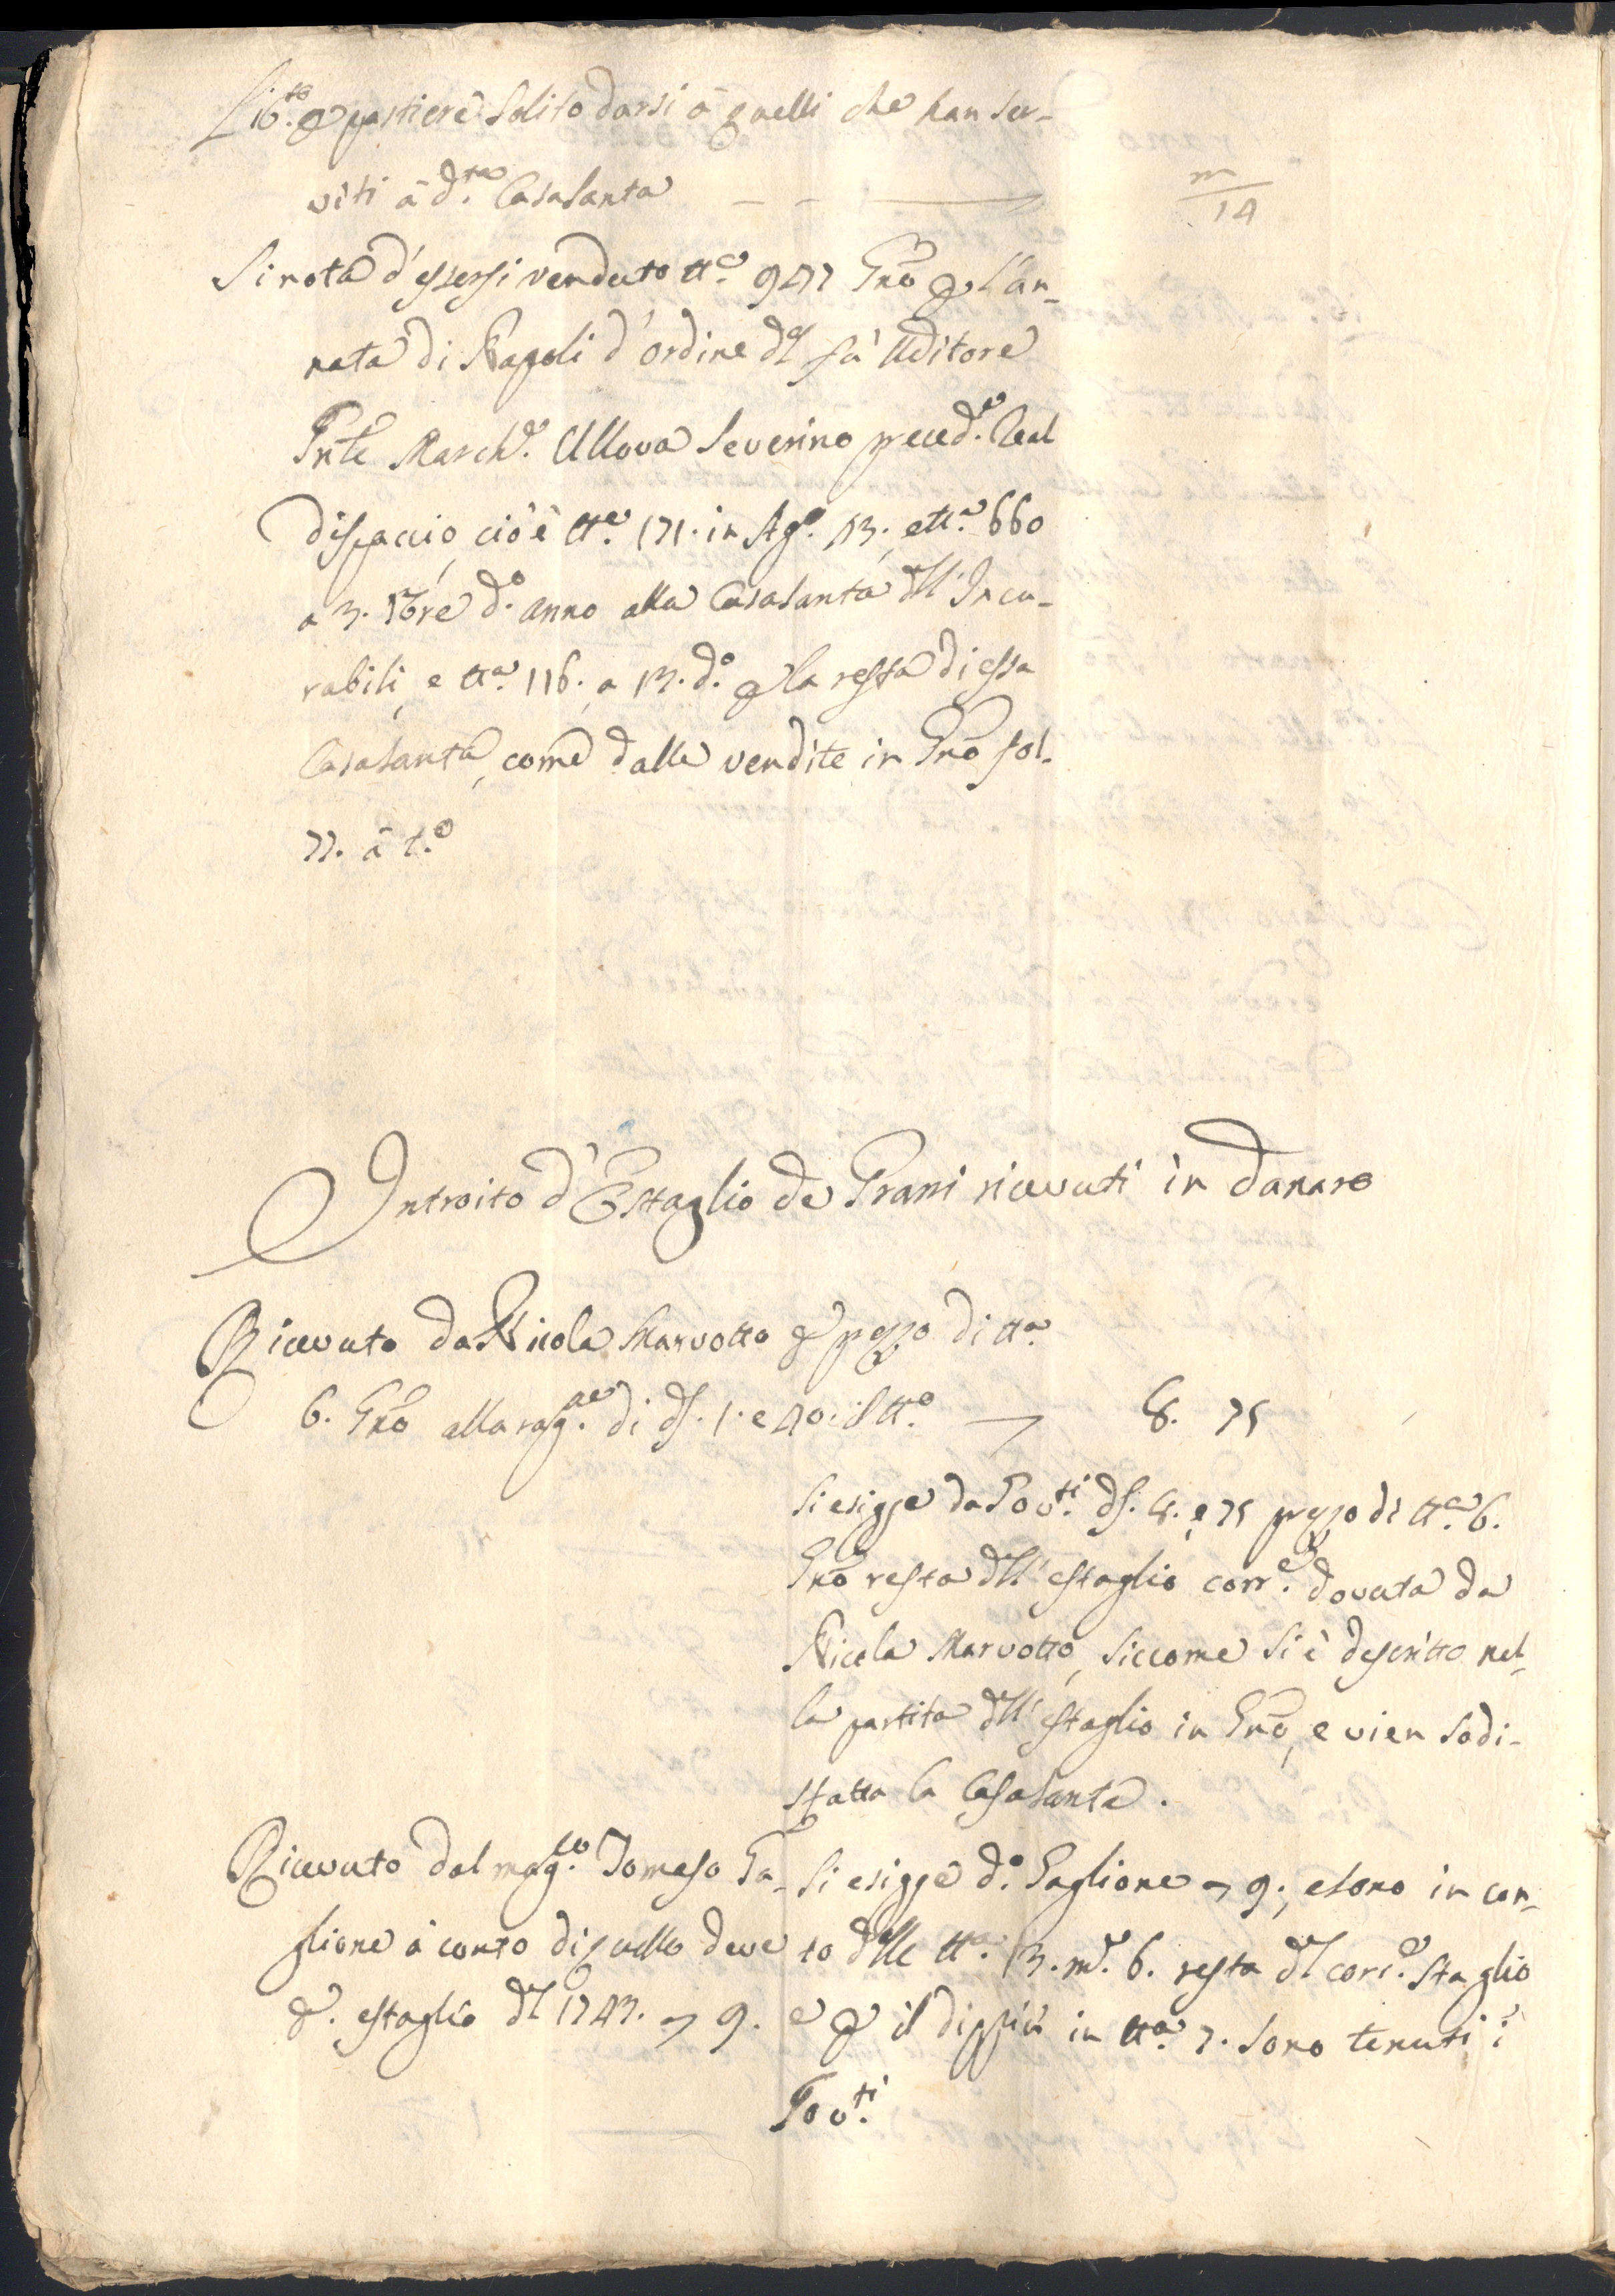 Lib.to p. pastiere solito darsi à quelli che han ser-
viti à d.ta Casasanta — — — m/14
Si nota d'essersi venduto tt.a 947 Gno p. l'an-
nata di Napoli d'ordine dl fù Uditore
Pnte March.e Ullova Severino preced.e Real
dispaccio, cio è tt.a 171. in Ag.o 43., e tt.a 660
a 3. 7bre d.o anno alla Casasanta dll' Incu-
rabili, e tt.a 116. a 13. d.o p. la resta di essa
Casasanta, come dalle vendite in Gno fol.
77. à t.o
Introito d'Estaglio de Grani ricevuti in danaro
Ricevuto da Nicola Marvotto p. prezzo di tt.a
6. Gno alla rag.ne di d. 1. e 40. il tt.o — 8. 75
Si esigge da Gov.ti d. 8. e 75 prezzo di tt.a 6.
Gno resta dll' estaglio corr.e dovuta da
Nicola Marvotto, siccome si è descritto nel-
la partita dll' estaglio in Gno, e vien sodi-
sfatta la Casasanta.
Ricevuto dal mag.co Tomaso Ga-
glione à conto di quello deve
p. estaglio dl 1743. – 9.
Si esigge d.o Gaglione – 9., e sono in con-
to dlle tt.a 13. m. 6. resta dl corr.e staglio
e p. il dippiù in tt.a 7. sono tenuti i
Gov.ti